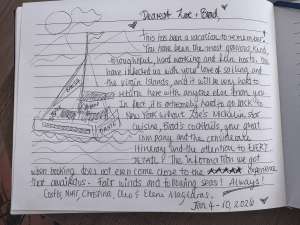 Dearest Zoe + Brad,
This has been a vacation to remember!
You have been the most generous, kind,
thoughtful, hard working and fun hosts. You
have infected us with your love of sailing and
the Virgin Islands, and it will be very hard to
return here with anyone else from you.
In fact, it is extremely hard to go back to
New York without Zoe's Michelin star
cuisine, Brad's cocktails, your great
company and the considerate
itinerary and the attention to EVERY
DETAIL! The information we got
when booking does not even come close to the ★★★★★ experience
that awaited us. Fair winds and following seas! Always!
Christina, Cleo & Elene
Jan 4-10, 2026